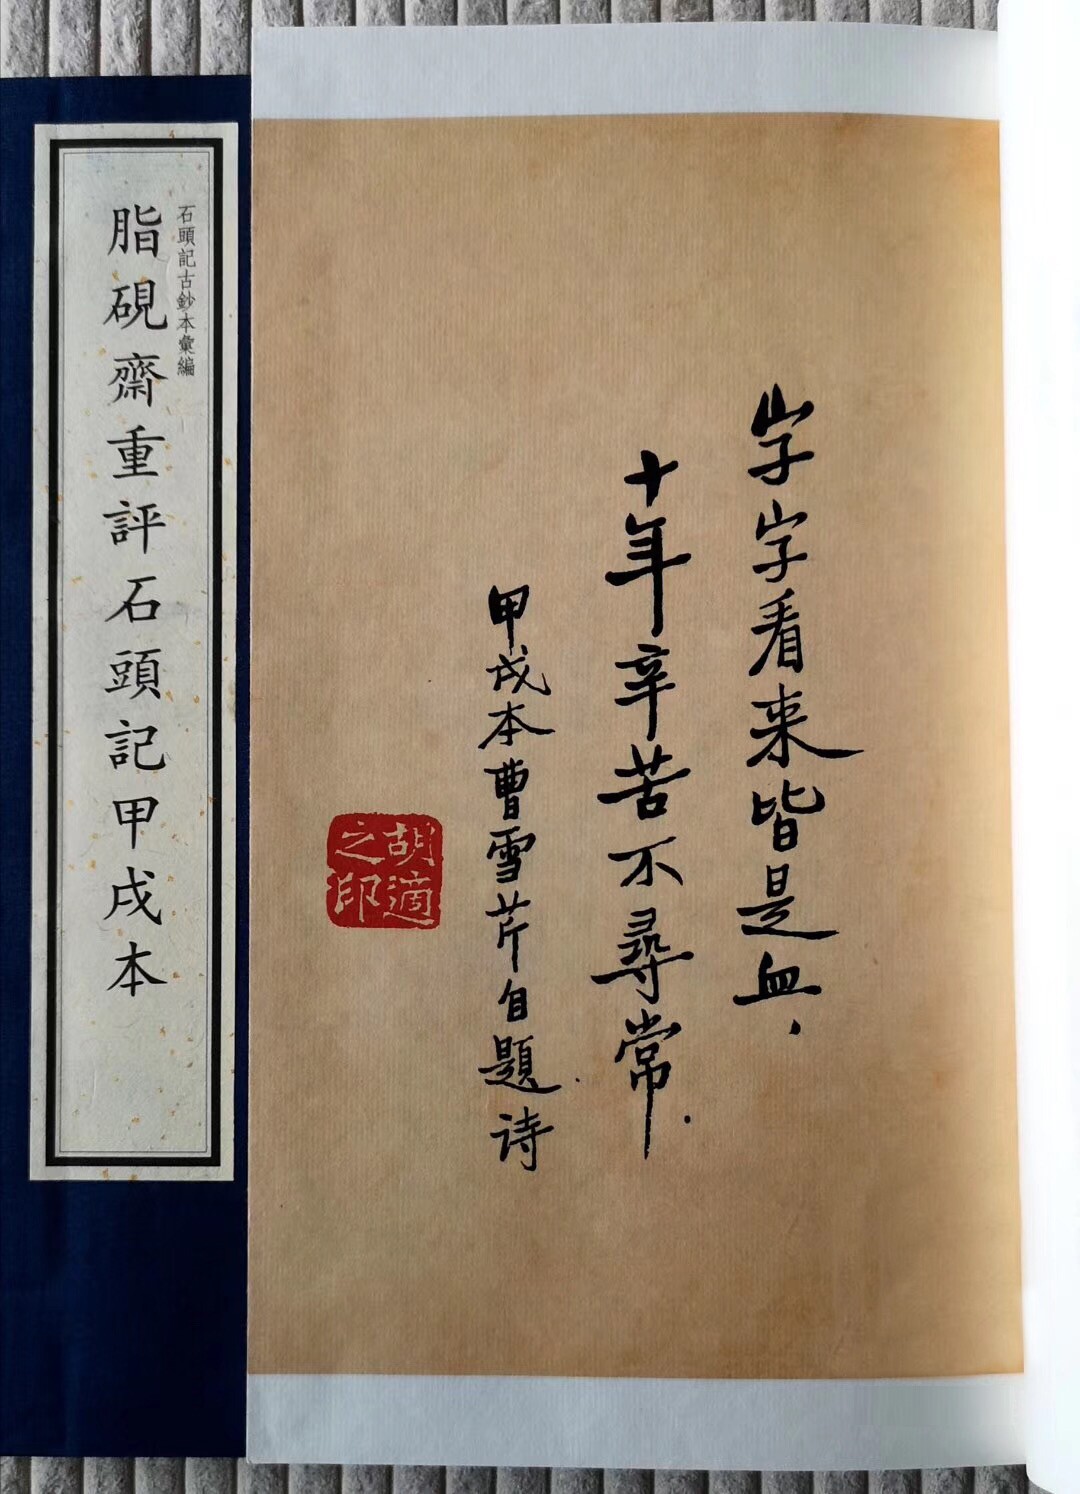 石頭記古鈔本彙編
脂硯齋重評石頭記甲戌本
字字看来皆是血，
十年辛苦不尋常．
甲戌本曹雪芹自題诗．
胡適之印